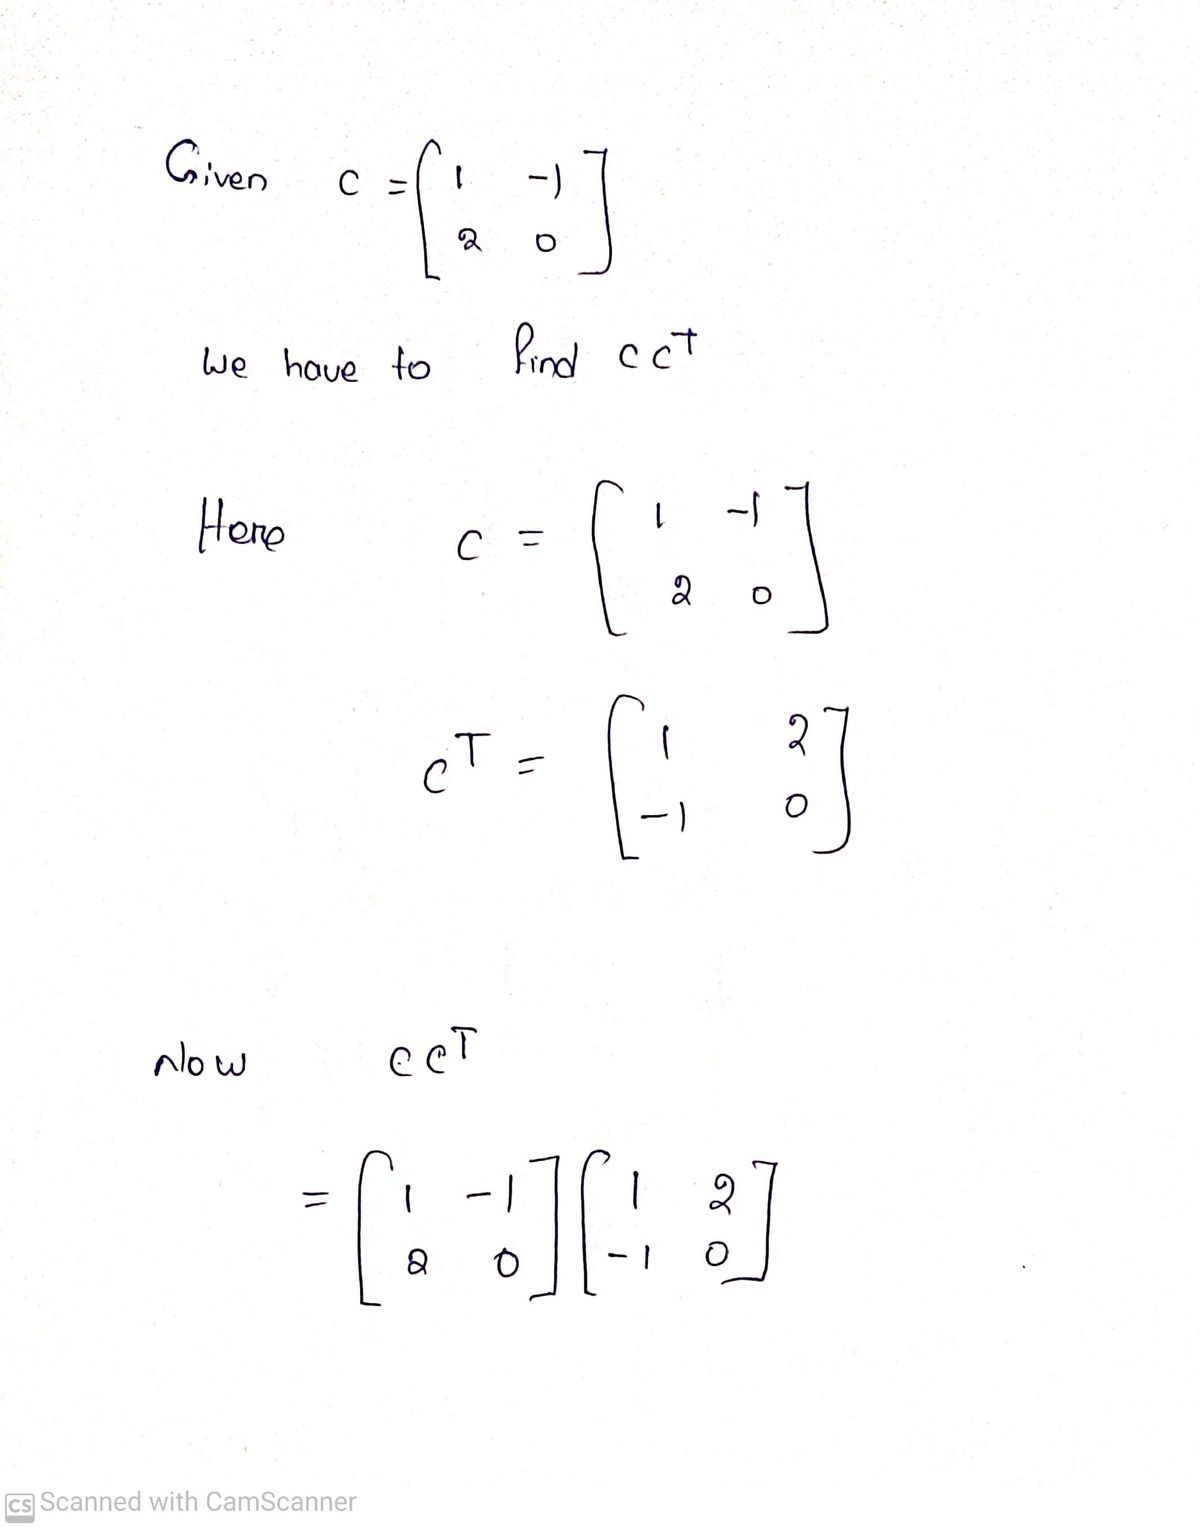 Given C = [ 1 -1
2 0 ]
we have to find CCT
Here C = [ 1 -1
2 0 ]
CT = [ 1 2
-1 0 ]
Now CCT
= [ 1 -1 ] [ 1 2 ]
2 0 -1 0
CS Scanned with CamScanner